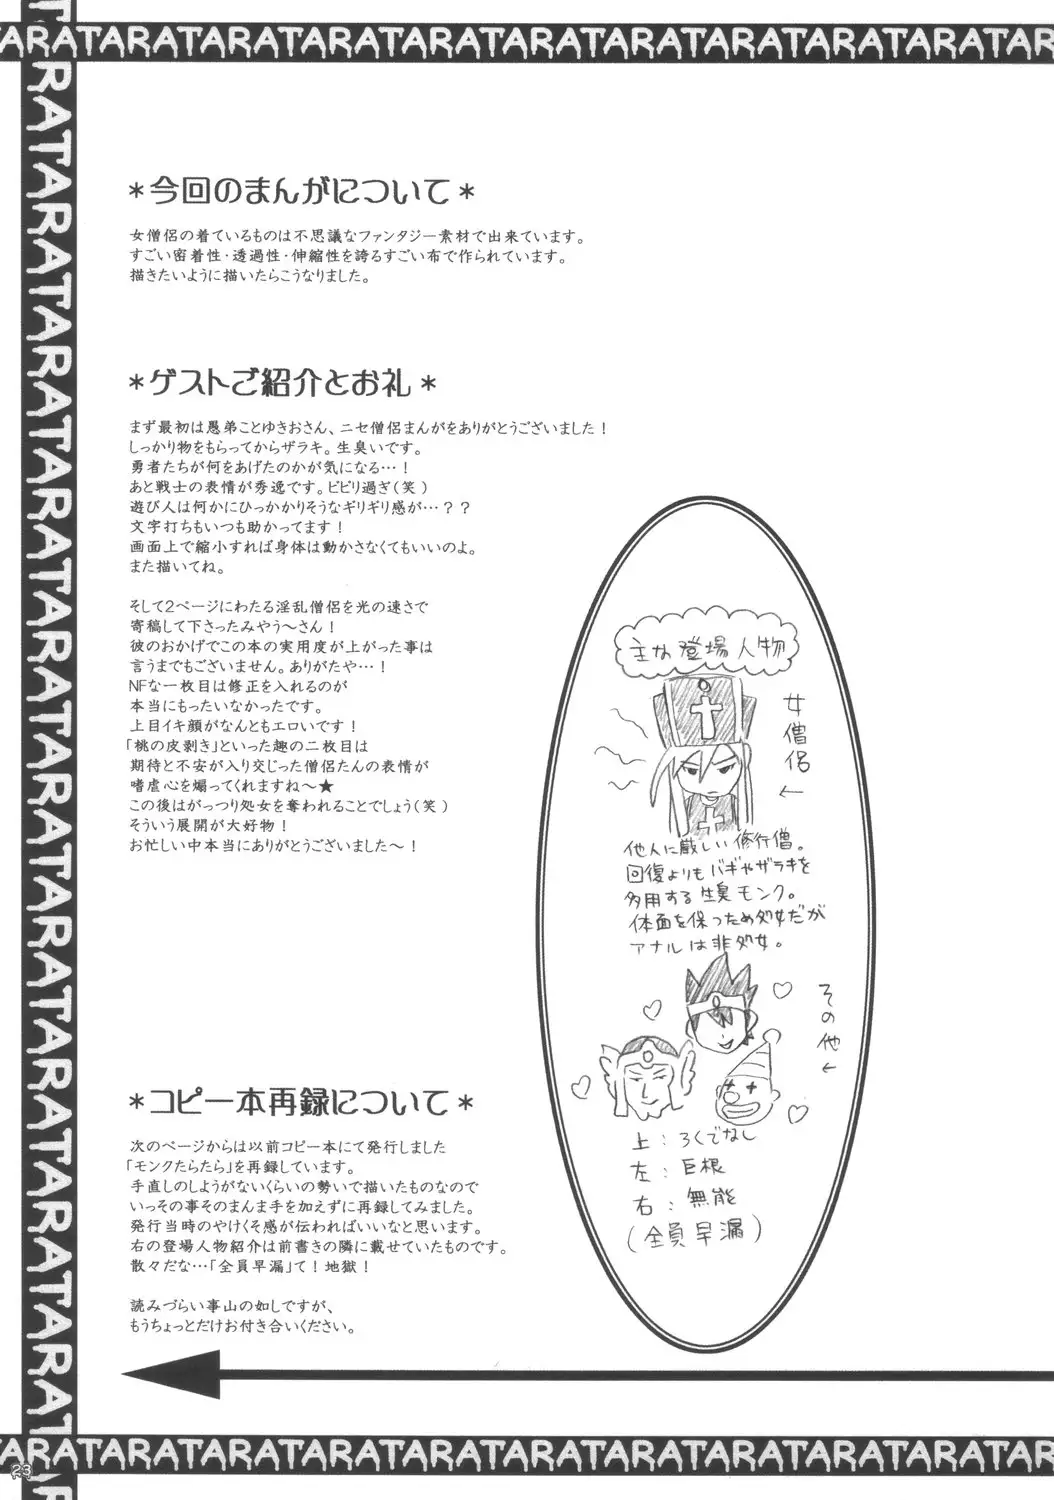 TARATARATARATARATARATARATARATARATARATARATAR
RATARATARATARATARATARATARATARATARATARA
＊今回のまんがについて＊
女僧侶の着ているものは不思議なファンタジー素材で出来ています。
すごい密着性・透過性・伸縮性を誇るすごい布で作られています。
描きたいように描いたらこうなりました。
＊ゲストご紹介とお礼＊
まず最初は愚弟ことゆきおさん、ニセ僧侶まんがをありがとうございました！
しっかり物をもらってからザラキ。生臭いです。
勇者たちが何をあげたのかが気になる…！
あと戦士の表情が秀逸です。ビビリ過ぎ（笑）
遊び人は何かにひっかかりそうなギリギリ感が…？？
文字打ちもいつも助かってます！
画面上で縮小すれば身体は動かさなくてもいいのよ。
また描いてね。
そして2ページにわたる淫乱僧侶を光の速さで
寄稿して下さったみやう～さん！
彼のおかげでこの本の実用度が上がった事は
言うまでもございません。ありがたや…！
NFな一枚目は修正を入れるのが
本当にもったいなかったです。
上目イキ顔がなんともエロいです！
「桃の皮剥き」といった趣の二枚目は
期待と不安が入り交じった僧侶たんの表情が
嗜虐心を煽ってくれますね～★
この後はがっつり処女を奪われることでしょう（笑）
そういう展開が大好物！
お忙しい中本当にありがとうございました～！
＊コピー本再録について＊
次のページからは以前コピー本にて発行しました
「モンクたらたら」を再録しています。
手直しのしようがないくらいの勢いで描いたものなので
いっその事そのまんま手を加えずに再録してみました。
発行当時のやけくそ感が伝わればいいなと思います。
右の登場人物紹介は前書きの隣に載せていたものです。
散々だな…「全員早漏」て！地獄！
読みづらい事山の如しですが、
もうちょっとだけお付き合いください。
主な登場人物
女僧侶←
他人に厳しい修行僧。
回復よりもバギやザラキを
多用する生臭モンク。
体面を保つため処女だが
アナルは非処女。
その他←
上：ろくでなし
左：巨根
右：無能
（全員早漏）
TARATARATARATARATARATARATARATARATARATARATAR
23